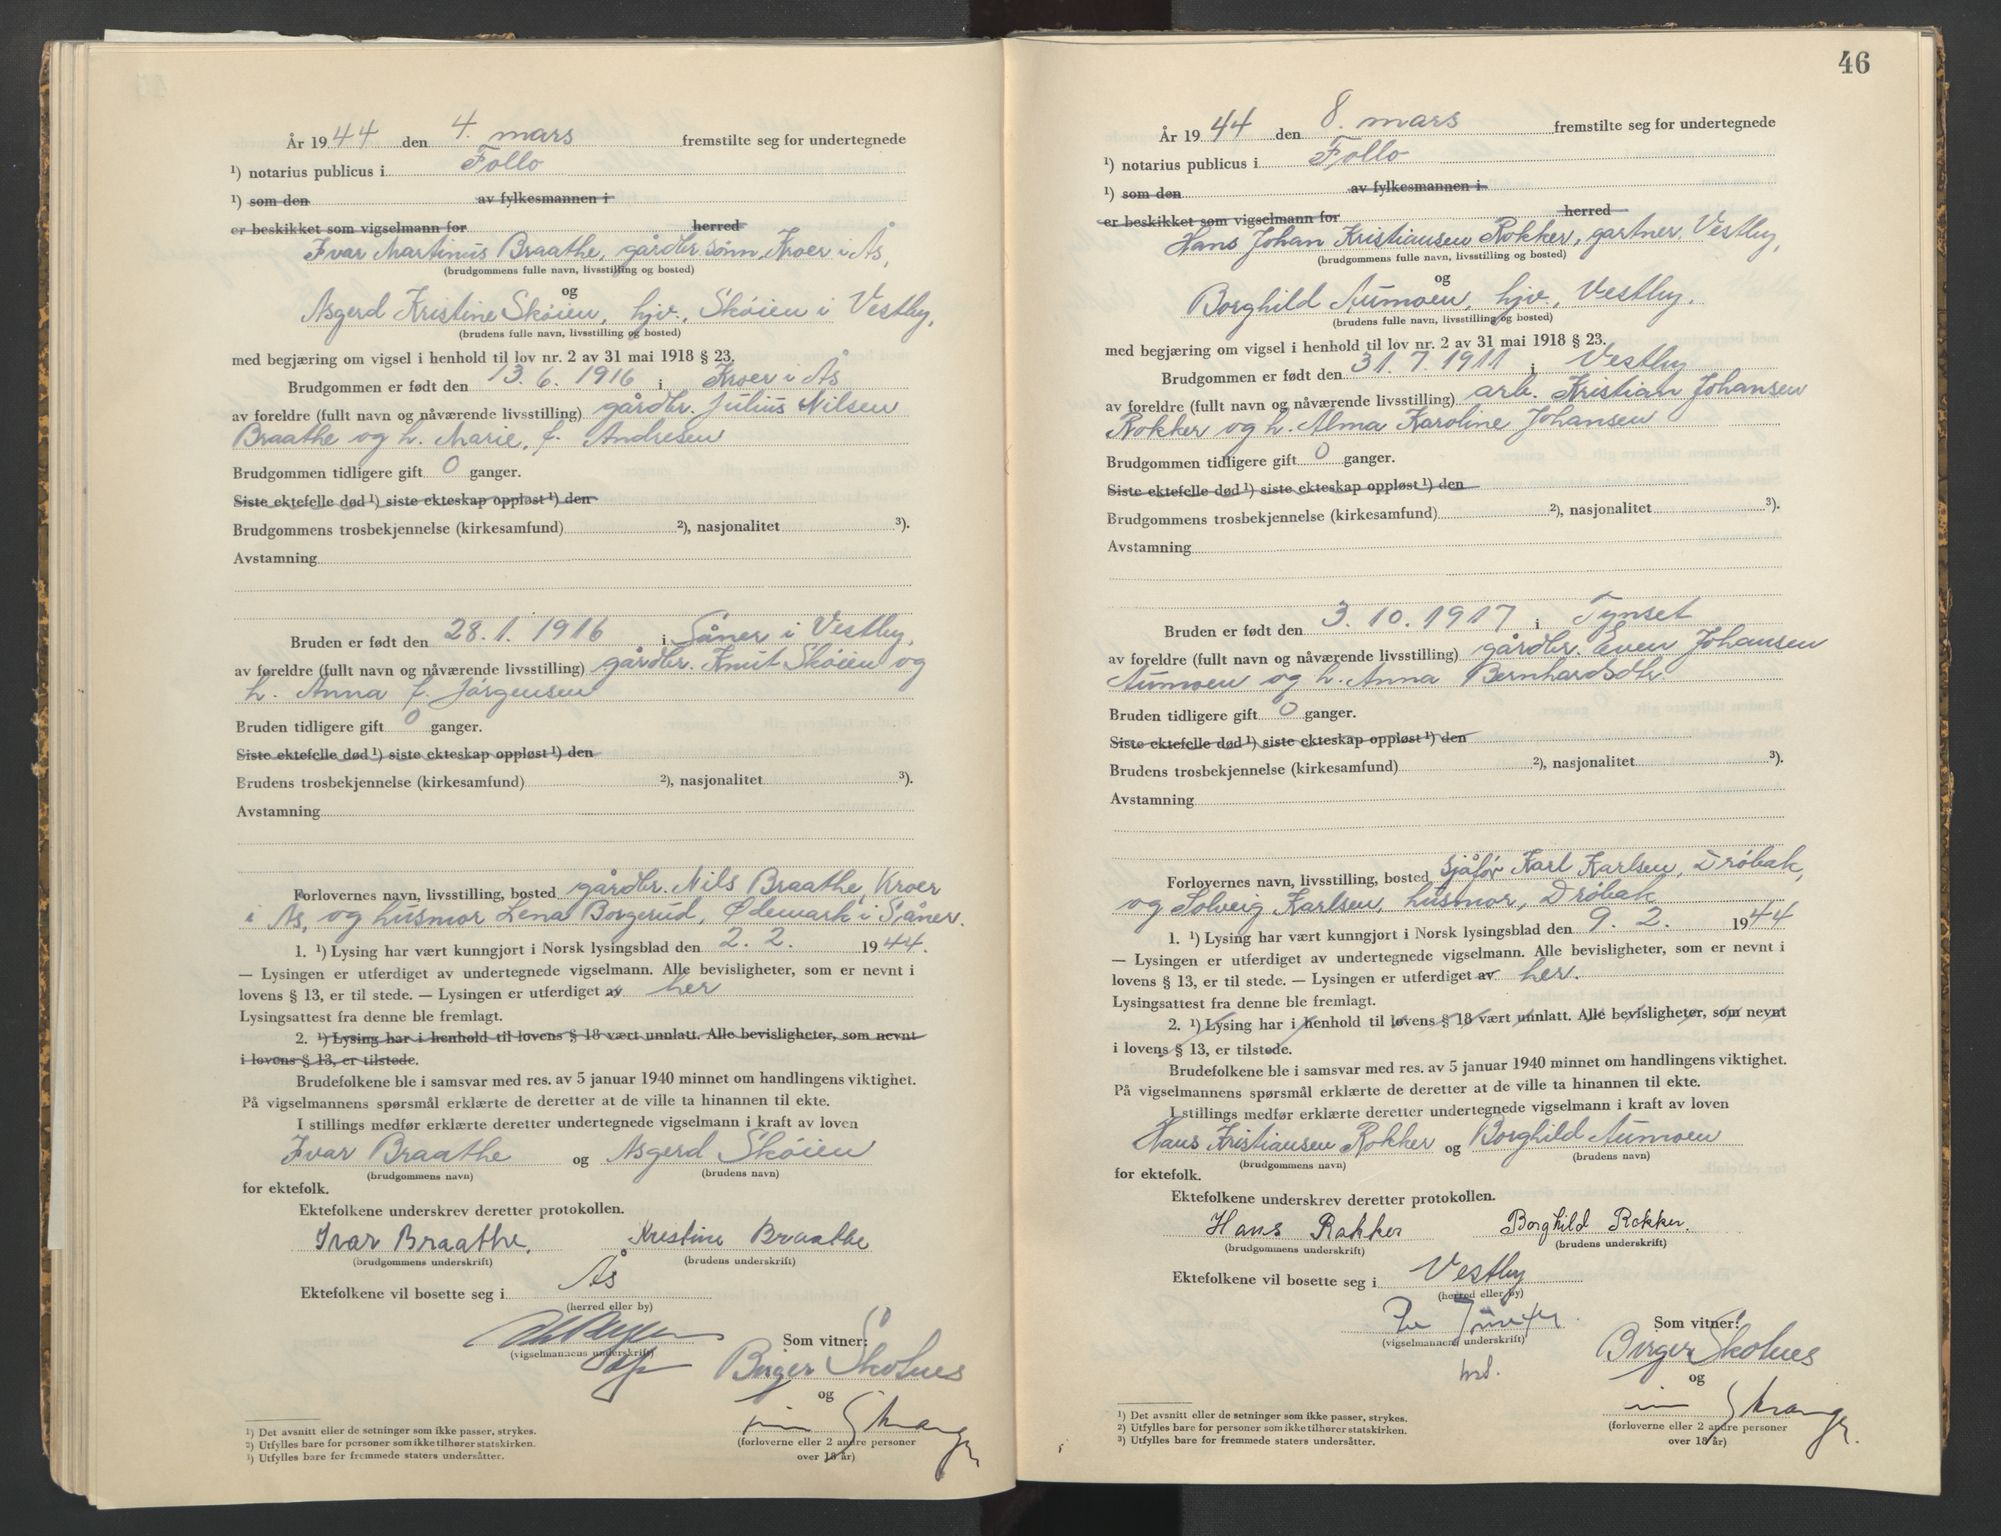 År 1944 den 4. mars fremstilte seg for undertegnede
¹) notarius publicus i Follo
¹) som den av fylkesmannen i
er beskikket som vigselmann for herred
Ivar Martinus Braathe, gårdbr.sønn, Kroer i Ås,
(brudgommens fulle navn, livsstilling og bosted)
og
Asgerd Kristine Skøien, hjv., Skøien i Vestby,
(brudens fulle navn, livsstilling og bosted)
med begjæring om vigsel i henhold til lov nr. 2 av 31 mai 1918 § 23.
Brudgommen er født den 13. 6. 1916 i Kroer i Ås
av foreldre (fullt navn og nåværende livsstilling) gårdbr. Julius Nilsen
Braathe og h. Marie, f. Andresen
Brudgommen tidligere gift 0 ganger.
Siste ektefelle død ¹) siste ekteskap oppløst ¹) den
Brudgommens trosbekjennelse (kirkesamfund) ²), nasjonalitet ³).
Avstamning
Bruden er født den 28. 1. 1916 i Såner i Vestby,
av foreldre (fullt navn og nåværende livsstilling) gårdbr. Knut Skøien og
h. Anna f. Jørgensen
Bruden tidligere gift 0 ganger.
Siste ektefelle død ¹) siste ekteskap oppløst ¹) den
Brudens trosbekjennelse (kirkesamfund) ²), nasjonalitet ³).
Avstamning
Forlovernes navn, livsstilling, bosted gårdbr. Nils Braathe, Kroer
i Ås, og husmor Lena Borgerud, Ødemark i Såner.
1. ¹) Lysing har vært kunngjort i Norsk lysingsblad den 2. 2. 1944.
— Lysingen er utferdiget av undertegnede vigselmann. Alle bevisligheter, som er nevnt i
lovens § 13, er til stede. — Lysingen er utferdiget av her
Lysingsattest fra denne ble fremlagt.
2. ¹) Lysing har i henhold til lovens § 18 vært unnlatt. Alle bevisligheter, som nevnt
i lovens § 13, er tilstede.
Brudefolkene ble i samsvar med res. av 5 januar 1940 minnet om handlingens viktighet.
På vigselmannens spørsmål erklærte de deretter at de ville ta hinannen til ekte.
I stillings medfør erklærte deretter undertegnede vigselmann i kraft av loven
Ivar Braathe og Asgerd Skøien
(brudgommens navn) (brudens navn)
for ektefolk.
Ektefolkene underskrev deretter protokollen.
Ivar Braathe. Kristine Braathe
(brudgommens underskrift) (brudens underskrift)
Ektefolkene vil bosette seg i Ås
(herred eller by)
Som vitner:
(vigselmannens underskrift)
Birger Skolnes
og
(forloverne eller 2 andre personer
over 18 år)
¹) Det avsnitt eller de setninger som ikke passer, strykes.
²) Utfylles bare for personer som ikke tilhører statskirken.
³) Utfylles bare for fremmede staters undersåtter.
46
År 1944 den 8. mars fremstilte seg for undertegnede
¹) notarius publicus i Follo
¹) som den av fylkesmannen i
er beskikket som vigselmann for herred
Hans Johan Kristiansen Rokker, gartner, Vestby,
(brudgommens fulle navn, livsstilling og bosted)
og
Borghild Aumoen, hjv., Vestby.
(brudens fulle navn, livsstilling og bosted)
med begjæring om vigsel i henhold til lov nr. 2 av 31 mai 1918 § 23.
Brudgommen er født den 31. 7. 1911 i Vestby
av foreldre (fullt navn og nåværende livsstilling) arb. Kristian Johansen
Rokker og h. Alma Karoline Johansen
Brudgommen tidligere gift 0 ganger.
Siste ektefelle død ¹) siste ekteskap oppløst ¹) den
Brudgommens trosbekjennelse (kirkesamfund) ²), nasjonalitet ³).
Avstamning
Bruden er født den 3. 10. 1917 i Tynset
av foreldre (fullt navn og nåværende livsstilling) gårdbr. Even Johansen
Aumoen og h. Anna Bernhardsdtr
Bruden tidligere gift 0 ganger.
Siste ektefelle død ¹) siste ekteskap oppløst ¹) den
Brudens trosbekjennelse (kirkesamfund) ²), nasjonalitet ³).
Avstamning
Forlovernes navn, livsstilling, bosted sjåfør Karl Karlsen, Drøbak,
og Solveig Karlsen, husmor, Drøbak
1. ¹) Lysing har vært kunngjort i Norsk lysingsblad den 9. 2. 1944
— Lysingen er utferdiget av undertegnede vigselmann. Alle bevisligheter, som er nevnt i
lovens § 13, er til stede. — Lysingen er utferdiget av her.
Lysingsattest fra denne ble fremlagt.
2. ¹) Lysing har i henhold til lovens § 18 vært unnlatt. Alle bevisligheter, som nevnt
i lovens § 13, er tilstede.
Brudefolkene ble i samsvar med res. av 5 januar 1940 minnet om handlingens viktighet.
På vigselmannens spørsmål erklærte de deretter at de ville ta hinannen til ekte.
I stillings medfør erklærte deretter undertegnede vigselmann i kraft av loven
Hans Kristiansen Rokker og Borghild Aumoen
(brudgommens navn) (brudens navn)
for ektefolk.
Ektefolkene underskrev deretter protokollen.
Hans Rokker Borghild Rokker.
(brudgommens underskrift) (brudens underskrift)
Ektefolkene vil bosette seg i Vestby
(herred eller by)
Som vitner:
(vigselmannens underskrift)
Birger Skolnes
og
(forloverne eller 2 andre personer
over 18 år)
¹) Det avsnitt eller de setninger som ikke passer, strykes.
²) Utfylles bare for personer som ikke tilhører statskirken.
³) Utfylles bare for fremmede staters undersåtter.